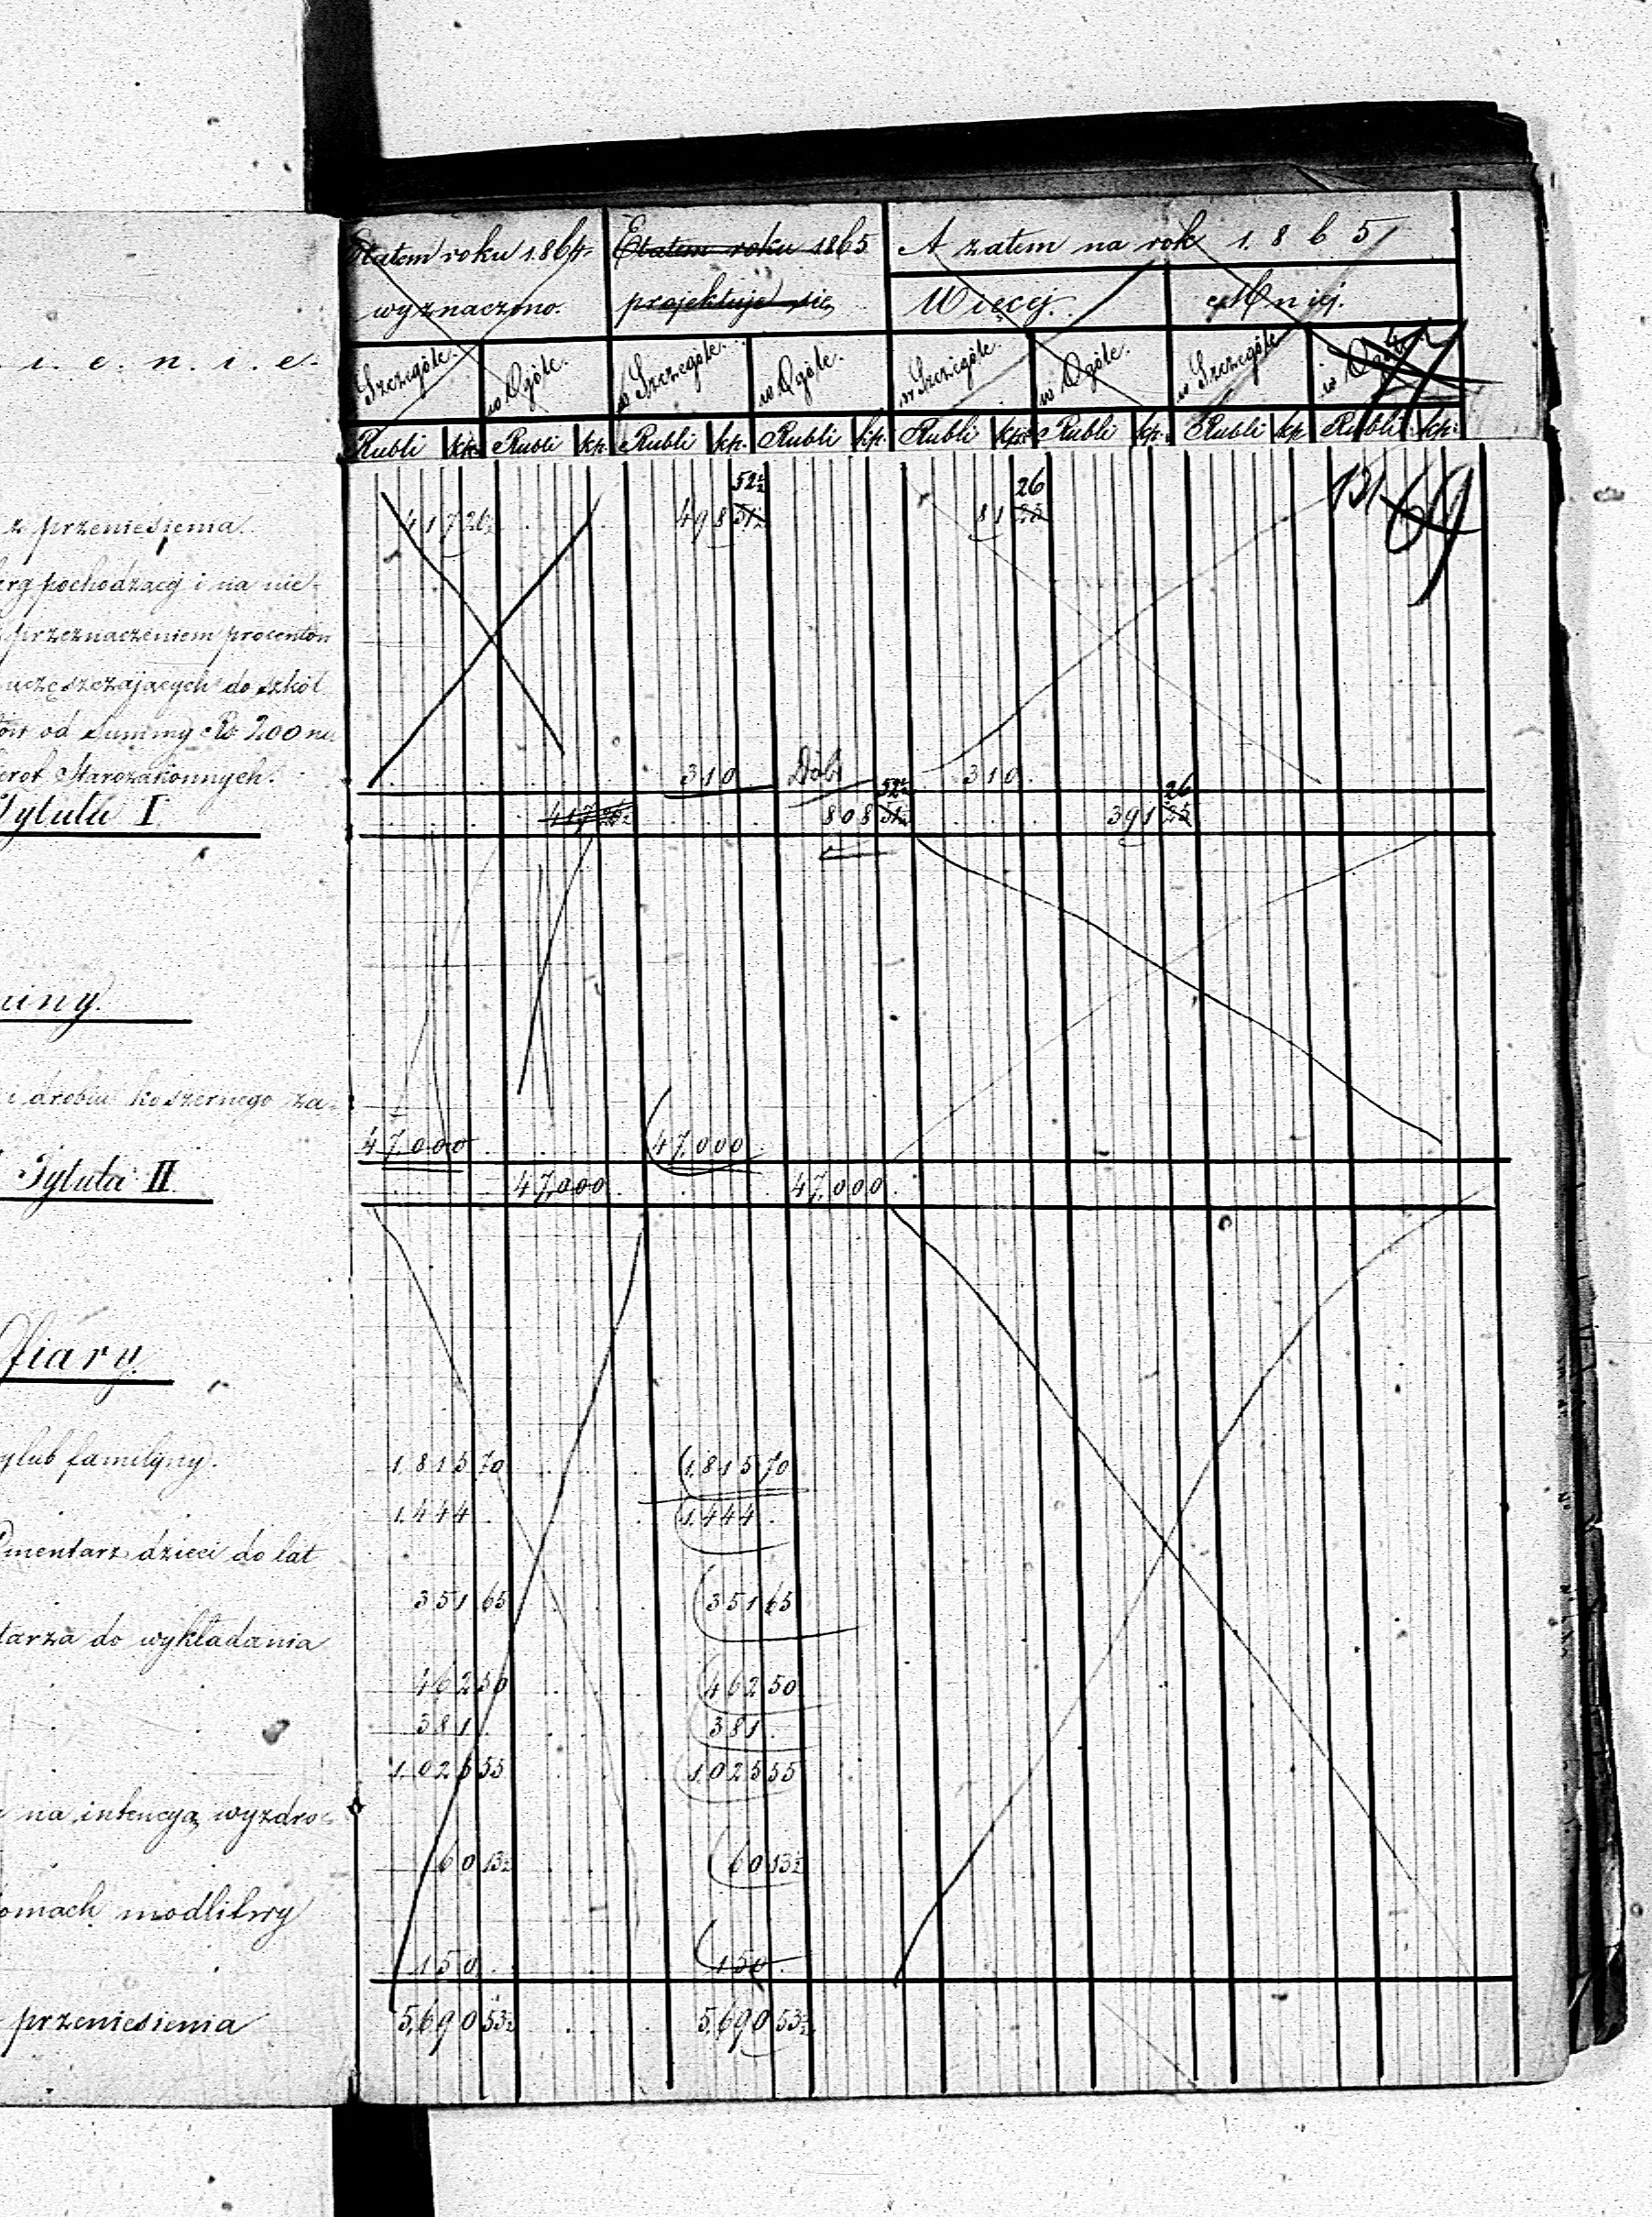 Etatem roku 1864 Etatem roku 1865 A zatem na rok 1.8 6 5
wyznaczono. projektuje się Więcej. Mniej.
i. e. n. i. e.
w Szczególe. w Ogóle. w Szczególe. w Ogóle. w Szczególe. w Ogóle. w Szczególe w Ogóle
Rubli kp. Rubli kp. Rubli kp. Rubli kp. Rubli kp. Rubli kp. Rubli kp Rubli kp.
52½ 26 69
z przeniesienia. 417 26½ 498 51½ 81 25
pochodzącej i na nie-
przeznaczeniem procentów
uczęszczających do szkół
od Summy Rs 200 na
Starozakonnych. 310 310
52½ 26
Tytułu I 417 26½ 808 51½ 391 25
i drobiu koszernego za-
47.000 47.000
Tytułu II 47.000 47.000
Ofiary.
lub familijny. 1.815 70 1.815 70
1.444 1.444
Cmentarz dzieci do lat
351 65 351 65
tarza do wykładania
462 50 462 50
381 381
1.025 55 1.025 55
na intencyą wyzdro-
60 13½ 60 13½
omach modlitwy
150 150
przeniesienia 5.690 53½ 5.690 53½